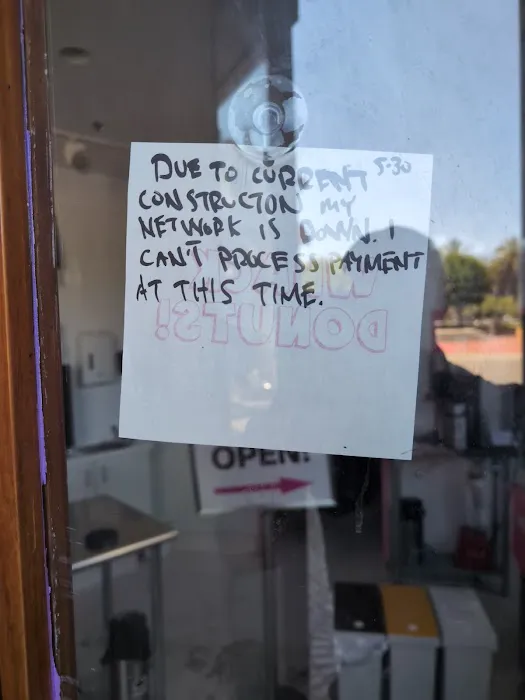 DUE TO CURRENT 5-30
CONSTRUCTON MY
NETWORK IS DOWN. I
CAN'T PROCESS PAYMENT
AT THIS TIME.
DONUTS!
OPEN!